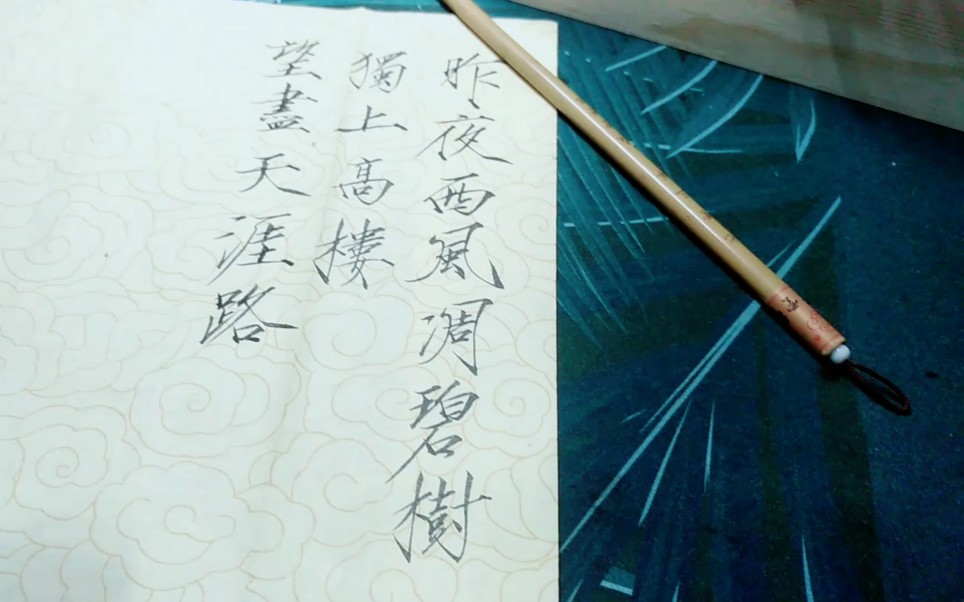 昨夜西風凋碧樹
獨上高樓
望盡天涯路